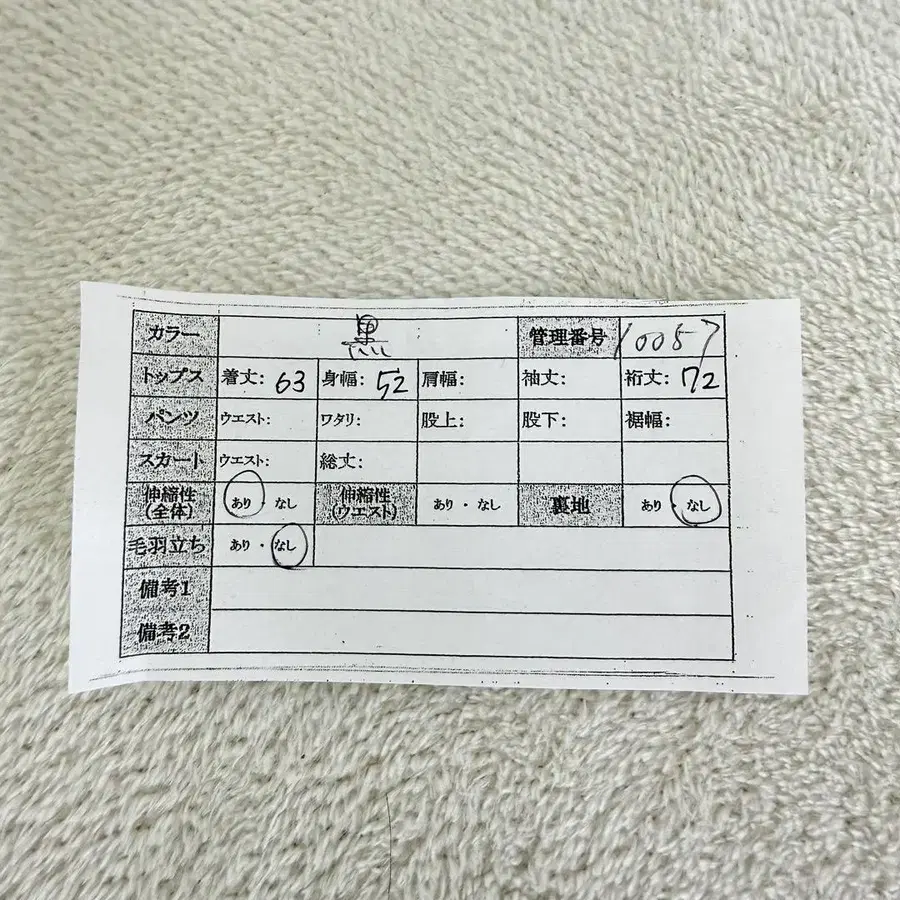 カラー 黒 管理番号 10057
トップス 着丈: 63 身幅: 52 肩幅: 袖丈: 裄丈: 72
パンツ ウエスト: ワタリ: 股上: 股下: 裾幅:
スカート ウエスト: 総丈:
伸縮性(全体) あり・なし 伸縮性(ウエスト) あり・なし 裏地 あり・なし
毛羽立ち あり・なし
備考1
備考2